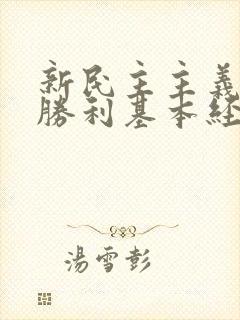 新民主主義
勝利基本経
湯雪彭